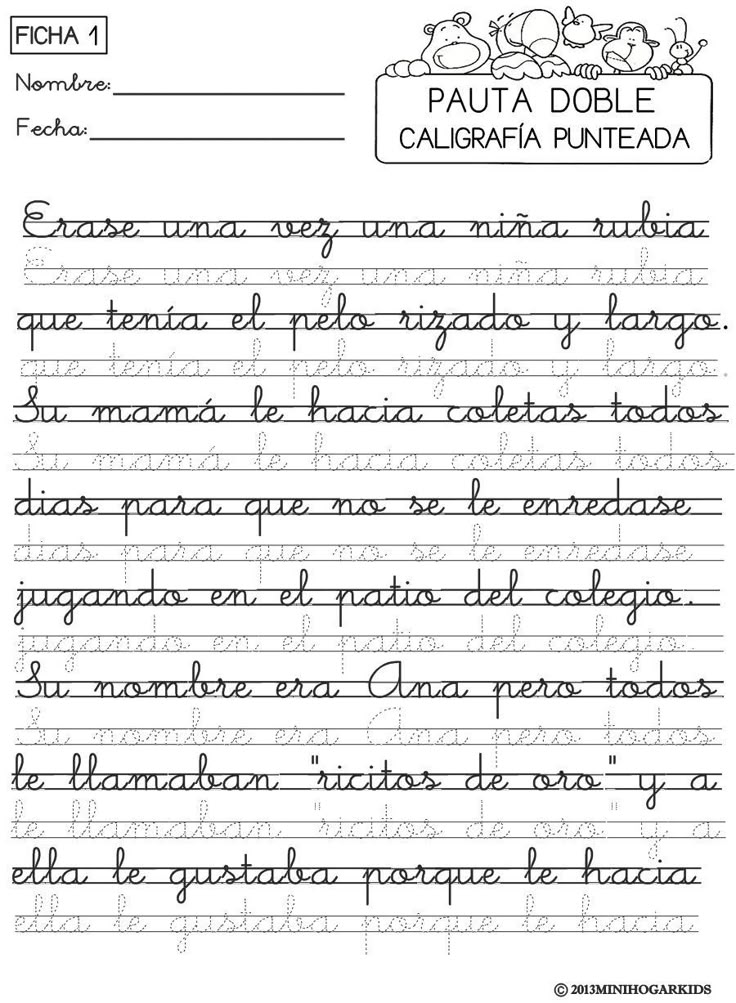 FICHA 1
Nombre:
Fecha:
PAUTA DOBLE
CALIGRAFÍA PUNTEADA
Erase una vez una niña rubia
Erase una vez una niña rubia
que tenía el pelo rizado y largo.
que tenía el pelo rizado y largo.
Su mamá le hacia coletas todos
Su mamá le hacia coletas todos
dias para que no se le enredase
dias para que no se le enredase
jugando en el patio del colegio.
jugando en el patio del colegio.
Su nombre era Ana pero todos
Su nombre era Ana pero todos
le llamaban "ricitos de oro" y a
le llamaban "ricitos de oro" y a
ella le gustaba porque le hacia
ella le gustaba porque le hacia
© 2013MINIHOGARKIDS